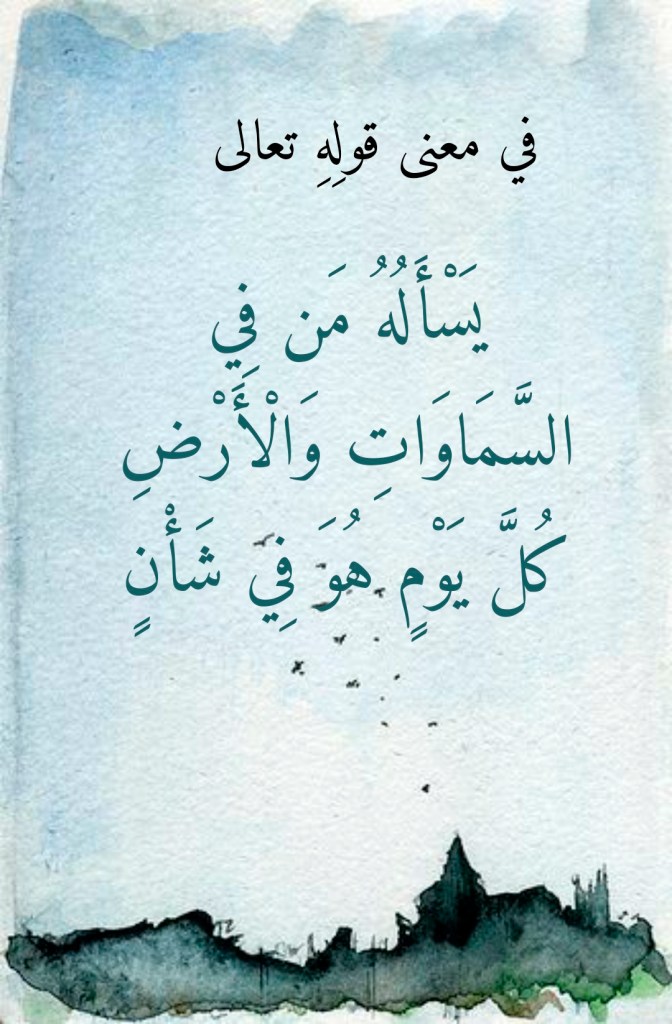 في معنى قولِهِ تعالى
يَسْأَلُهُ مَن فِي
السَّمَاوَاتِ وَالْأَرْضِ
كُلَّ يَوْمٍ هُوَ فِي شَأْنٍ